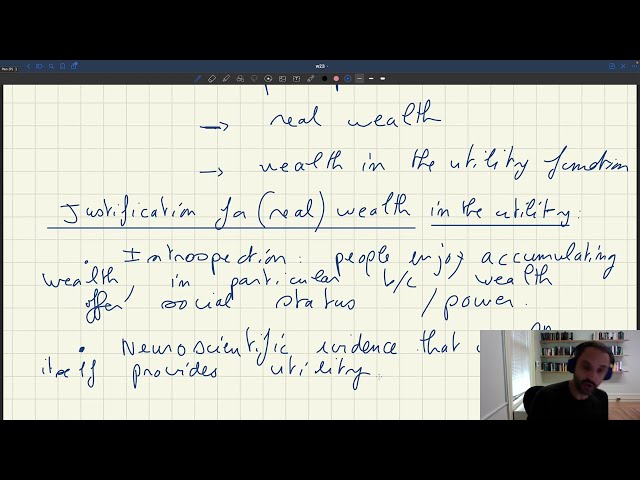 w23
→ real wealth
→ wealth in the utility function
Justification for (real) wealth in the utility:
• Introspection: people enjoy accumulating
wealth, in particular b/c wealth
offers social status / power.
• Neuroscientific evidence that
itself provides utility